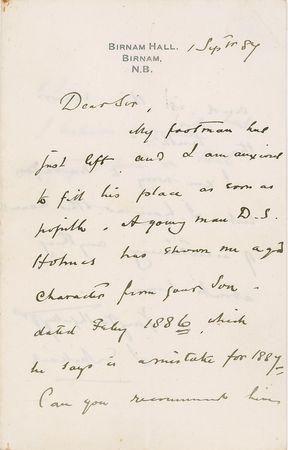 BIRNAM HALL,
BIRNAM,
N.B.
1 Sepr 87
Dear Sir,
My footman has
just left and I am anxious
to fill his place as soon as
possible. A young man D. S.
Holmes has shewn me a gd
character from your Son -
dated Feby 1886, which
he says is a mistake for 1887.
Can you recommend him